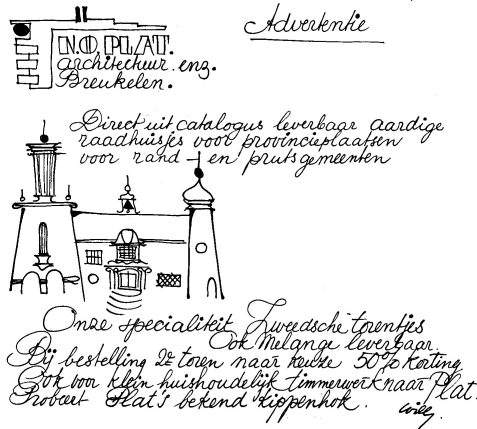 Advertentie
N.O. PLAT.
architecteur. enz.
Breukelen.
Direct uit catalogus leverbaar aardige
raadhuisjes voor provincieplaatsen
voor rand - en prutsgemeenten
Onze specialiteit Zweedsche torentjes
Ook Melange leverbaar.
Bij bestelling 2e toren naar keuze 50% korting
Ook voor klein huishoudelijk timmerwerk naar Plat.
Probeert Plat's bekend kippenhok.